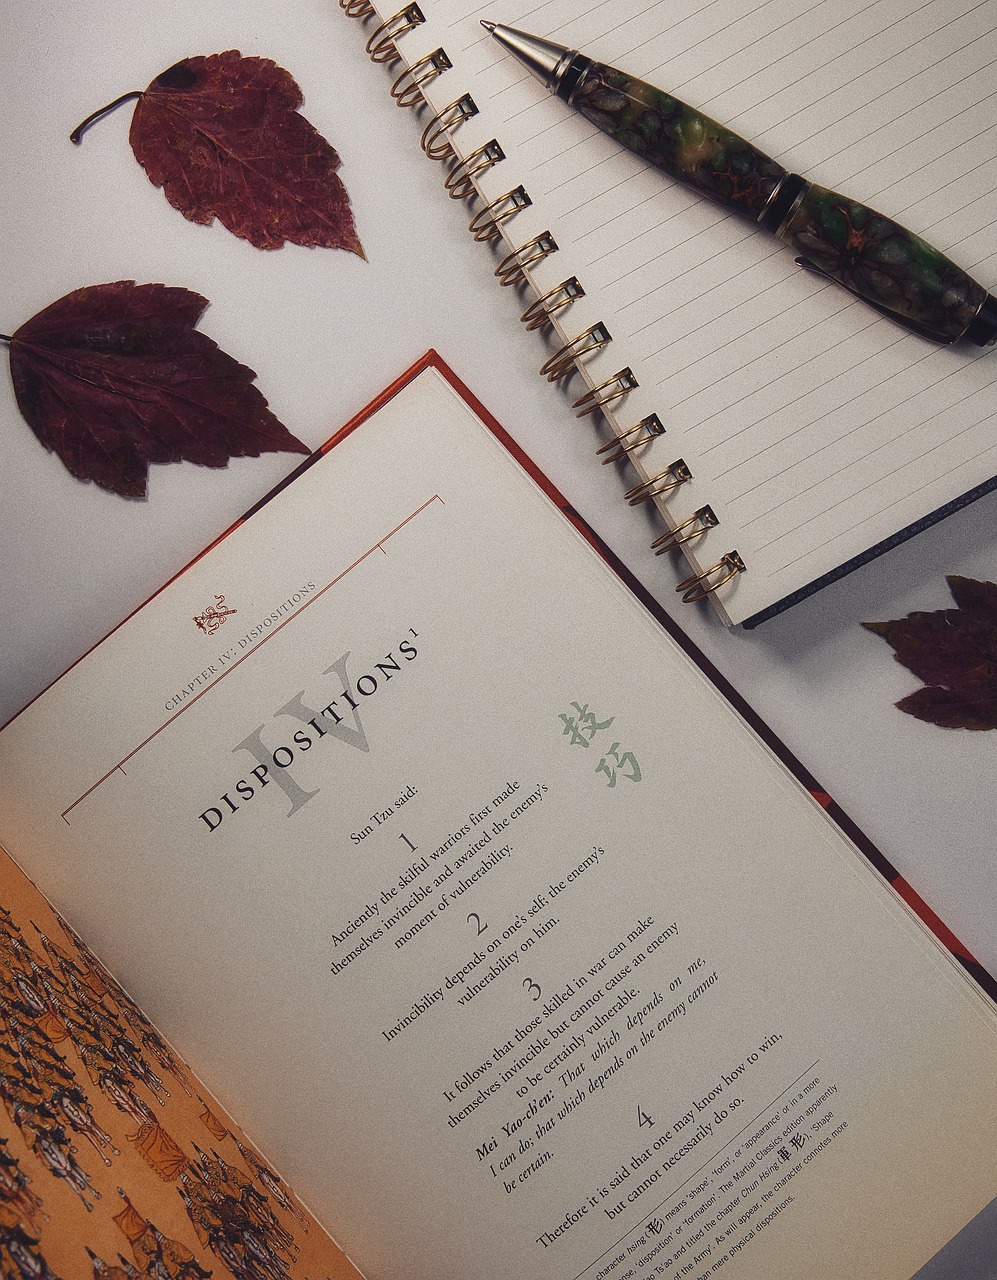 CHAPTER IV: DISPOSITIONS
IV
DISPOSITIONS¹
技
巧
Sun Tzu said:
1
Anciently the skilful warriors first made
themselves invincible and awaited the enemy's
moment of vulnerability.
2
Invincibility depends on one's self; the enemy's
vulnerability on him.
3
It follows that those skilled in war can make
themselves invincible but cannot cause an enemy
to be certainly vulnerable.
Mei Yao-ch'en: That which depends on me,
I can do; that which depends on the enemy cannot
be certain.
4
Therefore it is said that one may know how to win,
but cannot necessarily do so.
character hsing (形) means 'shape', 'form', or 'appearance' or in a more
sense, 'disposition' or 'formation'. The Martial Classics edition apparently
Ts'ao and titled the chapter Chun Hsing (軍形), 'Shape
of the Army'. As will appear, the character connotes more
than mere physical dispositions.